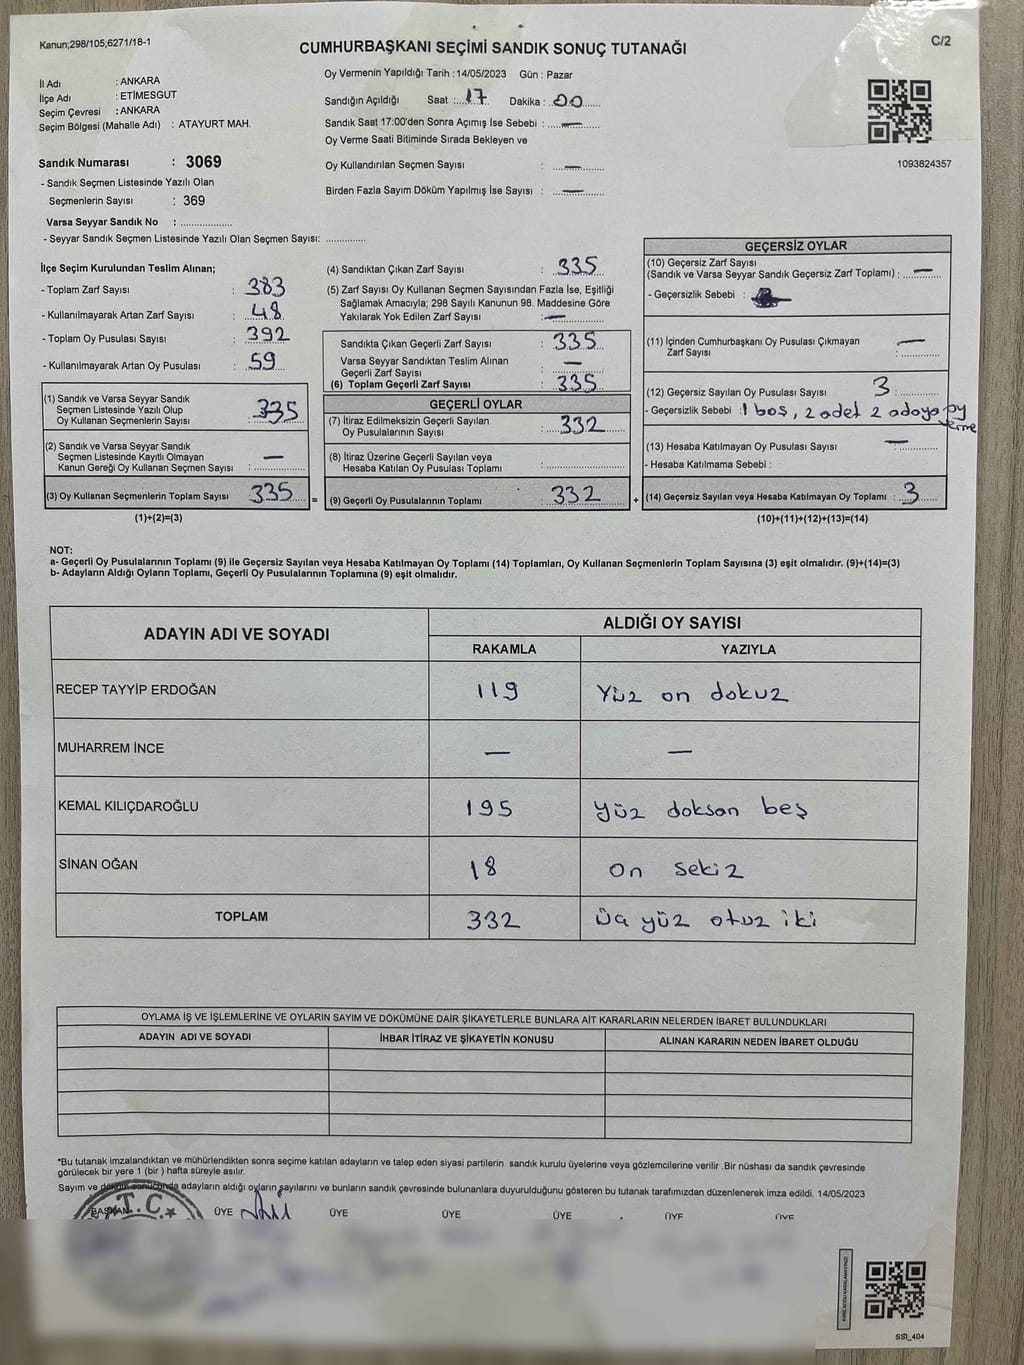 Kanun;298/105;6271/18-1
C/2
CUMHURBAŞKANI SEÇİMİ SANDIK SONUÇ TUTANAĞI
İl Adı : ANKARA
İlçe Adı : ETİMESGUT
Seçim Çevresi : ANKARA
Seçim Bölgesi (Mahalle Adı) : ATAYURT MAH.
Sandık Numarası : 3069
- Sandık Seçmen Listesinde Yazılı Olan
Seçmenlerin Sayısı : 369
Varsa Seyyar Sandık No : ..................
- Seyyar Sandık Seçmen Listesinde Yazılı Olan Seçmen Sayısı: ..............
Oy Vermenin Yapıldığı Tarih : 14/05/2023 Gün : Pazar
Sandığın Açıldığı Saat : 17 Dakika : 00
Sandık Saat 17:00'den Sonra Açımış İse Sebebi : —
Oy Verme Saati Bitiminde Sırada Bekleyen ve
Oy Kullandırılan Seçmen Sayısı : —
Birden Fazla Sayım Döküm Yapılmış İse Sayısı : —
1093824357
İlçe Seçim Kurulundan Teslim Alınan;
- Toplam Zarf Sayısı : 383
- Kullanılmayarak Artan Zarf Sayısı : 48
- Toplam Oy Pusulası Sayısı : 392
- Kullanılmayarak Artan Oy Pusulası : 59
(1) Sandık ve Varsa Seyyar Sandık
Seçmen Listesinde Yazılı Olup
Oy Kullanan Seçmenlerin Sayısı : 335
(2) Sandık ve Varsa Seyyar Sandık
Seçmen Listesinde Kayıtlı Olmayan
Kanun Gereği Oy Kullanan Seçmen Sayısı : —
(3) Oy Kullanan Seçmenlerin Toplam Sayısı : 335
(1)+(2)=(3)
(4) Sandıktan Çıkan Zarf Sayısı : 335
(5) Zarf Sayısı Oy Kullanan Seçmen Sayısından Fazla İse, Eşitliği
Sağlamak Amacıyla; 298 Sayılı Kanunun 98. Maddesine Göre
Yakılarak Yok Edilen Zarf Sayısı : —
Sandıkta Çıkan Geçerli Zarf Sayısı : 335
Varsa Seyyar Sandıktan Teslim Alınan
Geçerli Zarf Sayısı : —
(6) Toplam Geçerli Zarf Sayısı : 335
GEÇERLİ OYLAR
(7) İtiraz Edilmeksizin Geçerli Sayılan
Oy Pusulalarının Sayısı : 332
(8) İtiraz Üzerine Geçerli Sayılan veya
Hesaba Katılan Oy Pusulası Toplamı : ..................
= (9) Geçerli Oy Pusulalarının Toplamı : 332
GEÇERSİZ OYLAR
(10) Geçersiz Zarf Sayısı
(Sandık ve Varsa Seyyar Sandık Geçersiz Zarf Toplamı) : —
- Geçersizlik Sebebi :
(11) İçinden Cumhurbaşkanı Oy Pusulası Çıkmayan
Zarf Sayısı : —
(12) Geçersiz Sayılan Oy Pusulası Sayısı : 3
- Geçersizlik Sebebi : 1 boş, 2 adet 2 adaya oy
verme
(13) Hesaba Katılmayan Oy Pusulası Sayısı : —
- Hesaba Katılmama Sebebi :
+ (14) Geçersiz Sayılan veya Hesaba Katılmayan Oy Toplamı : 3
(10)+(11)+(12)+(13)=(14)
NOT:
a- Geçerli Oy Pusulalarının Toplamı (9) ile Geçersiz Sayılan veya Hesaba Katılmayan Oy Toplamı (14) Toplamları, Oy Kullanan Seçmenlerin Toplam Sayısına (3) eşit olmalıdır. (9)+(14)=(3)
b- Adayların Aldığı Oyların Toplamı, Geçerli Oy Pusulalarının Toplamına (9) eşit olmalıdır.
ADAYIN ADI VE SOYADI ALDIĞI OY SAYISI
RAKAMLA YAZIYLA
RECEP TAYYİP ERDOĞAN 119 Yüz on dokuz
MUHARREM İNCE — —
KEMAL KILIÇDAROĞLU 195 yüz doksan beş
SİNAN OĞAN 18 on sekiz
TOPLAM 332 üç yüz otuz iki
OYLAMA İŞ VE İŞLEMLERİNE VE OYLARIN SAYIM VE DÖKÜMÜNE DAİR ŞİKAYETLERLE BUNLARA AİT KARARLARIN NELERDEN İBARET BULUNDUKLARI
ADAYIN ADI VE SOYADI İHBAR İTİRAZ VE ŞİKAYETİN KONUSU ALINAN KARARIN NEDEN İBARET OLDUĞU
*Bu tutanak imzalandıktan ve mühürlendikten sonra seçime katılan adayların ve talep eden siyasi partilerin sandık kurulu üyelerine veya gözlemcilerine verilir .Bir nüshası da sandık çevresinde
görülecek bir yere 1 (bir ) hafta süreyle asılır.
Sayım ve döküm sonucunda adayların aldığı oyların sayılarını ve bunların sandık çevresinde bulunanlara duyurulduğunu gösteren bu tutanak tarafımızdan düzenlenerek imza edildi. 14/05/2023
BAŞKAN ÜYE ÜYE ÜYE ÜYE ÜYE ÜYE
T.C.
SSİ_404